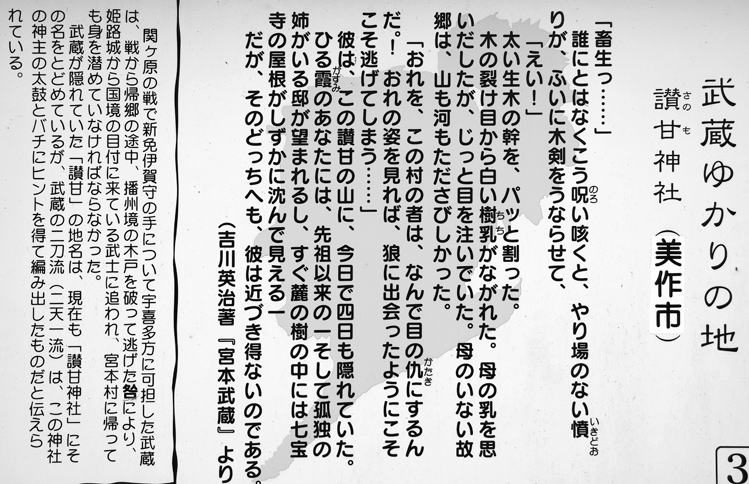 武蔵ゆかりの地
讃甘神社（美作市）
さのも
「畜生っ……」
誰にとはなくこう呪い咳くと、やり場のない憤
のろ
いきどお
りが、ふいに木剣をうならせて、
「えい！」
太い生木の幹を、パッと割った。
木の裂け目から白い樹乳がながれた。母の乳を思
ちち
いだしたが、じっと目を注いでいた。母のいない故
郷は、山も河もたださびしかった。
「おれを、この村の者は、なんで目の仇にするん
かたき
だ！おれの姿を見れば、狼に出会ったようにこそ
こそ逃げてしまう……」
彼は、この讃甘の山に、今日で四日も隠れていた。
ひる霞のあなたには、先祖以来の―そして孤独の
かすみ
姉がいる邸が望まれるし、すぐ麓の樹の中には七宝
寺の屋根がしずかに沈んで見える―
だが、そのどっちへも、彼は近づき得ないのである。
（吉川英治著『宮本武蔵』より
関ヶ原の戦で新免伊賀守の手について宇喜多方に可担した武蔵
は、戦から帰郷の途中、播州境の木戸を破って逃げた咎により、
姫路城から国境の目付に来ている武士に追われ、宮本村に帰って
も身を潜めていなければならなかった。
武蔵が隠れていた「讃甘」の地名は、現在も「讃甘神社」にそ
の名をとどめているが、武蔵の二刀流（二天一流）は、この神社
の神主の太鼓とバチにヒントを得て編み出したものだと伝えら
れている。
3